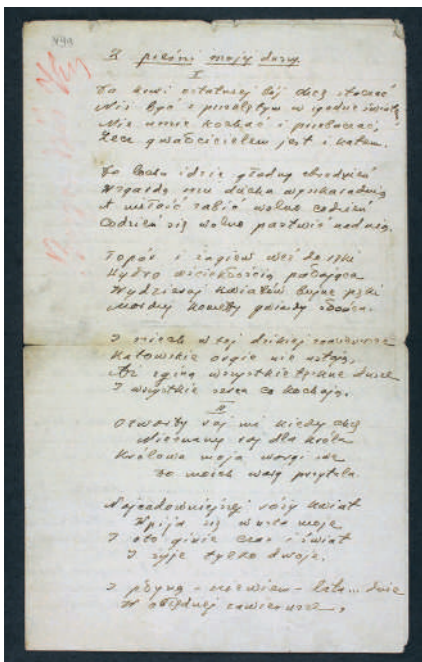 499
Z pieśni mojej duszy
I
Do krwi ostatniej bój chcę stoczać
Niż być z przeklętym w zgodzie światem
Nie umie kochać i przebaczać,
Lecz gwałcicielem jest i katem.
idzie głodny
Wzgardą ducha
A miłość zabić wolno codzień
Codzień się wolno pastwić nad nią.
Topór i żagiew weź do ręki
Hydro wściekłością pałająca
Wydzieraj kwiatów bujne pęki
Morduj komety gwiazdy słońca.
I niech w tej dzikiej
Katowskie orgie nie ustają,
Aż zginą wszystkie tęskne dusze
I wszystkie serca co kochają.
II
Otworzy raj mi kiedy chcę
raj dla króla
Królowa moja wargi swe
Do moich warg przytula.
Najcudowniejszej róży kwiat
Wpija się w usta moje
I oto ginie czas i świat
I żyje tylko dwoje.
I płyną – nie wiem – lata... dnie
W obłędnej zawierusze,